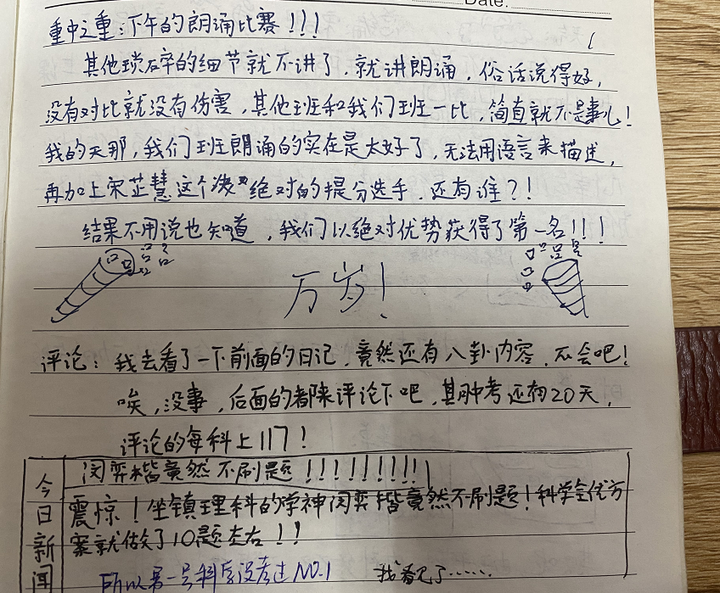 Date:
重中之重：下午的朗诵比赛！！！
其他琐碎的细节就不讲了，就讲朗诵，俗话说得好，
没有对比就没有伤害，其他班和我们班一比，简直就不是事儿！
我的天那，我们班朗诵的实在是太好了，无法用语言来描述，
再加上宋芷慧这个绝对的提分选手，还有谁？！
结果不用说也知道，我们以绝对优势获得了第一名！！！
万岁！
评论：我去看了一下前面的日记，竟然还有八卦内容，不会吧！
唉，没事，后面的都来评论下吧，其中考还有20天，
评论的每科上117！
今日新闻
闵弈楷竟然不刷题！！！！！！！！！
震惊！坐镇理科的学神闵弈楷竟然不刷题！科学全优方
案就做了10题左右！！
所以第一号科学没考过NO.1
我看见了……